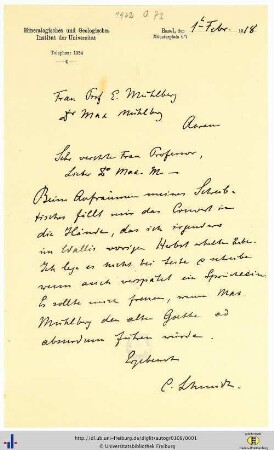 1962 0 73
Mineralogisches und Geologisches
Institut der Universität
Telephon 1924
Basel, den 1t Febr. 1918
Münsterplatz 6/7
Frau Prof E. Mühlberg
Dr Max Mühlberg
Aarau
Sehr verehrte Frau Professor,
Lieber Dr Max. M. —
Beim Aufräumen meines Schreib-
tisches fällt mir das Couvert in
die Hände, das ich irgendwo
im Wallis vorigen Herbst erhalten habe.
Ich lege es nicht bei Seite & schreibe
wenn auch verspätet ein Sprüchlein
Es sollte mich freuen, wenn Max
Mühlberg den alten Goethe ad
absurdum führen würde.
Ergebenst
C. Schmidt.
http://dl.ub.uni-freiburg.de/diglit/autogr0309/0001
© Universitätsbibliothek Freiburg